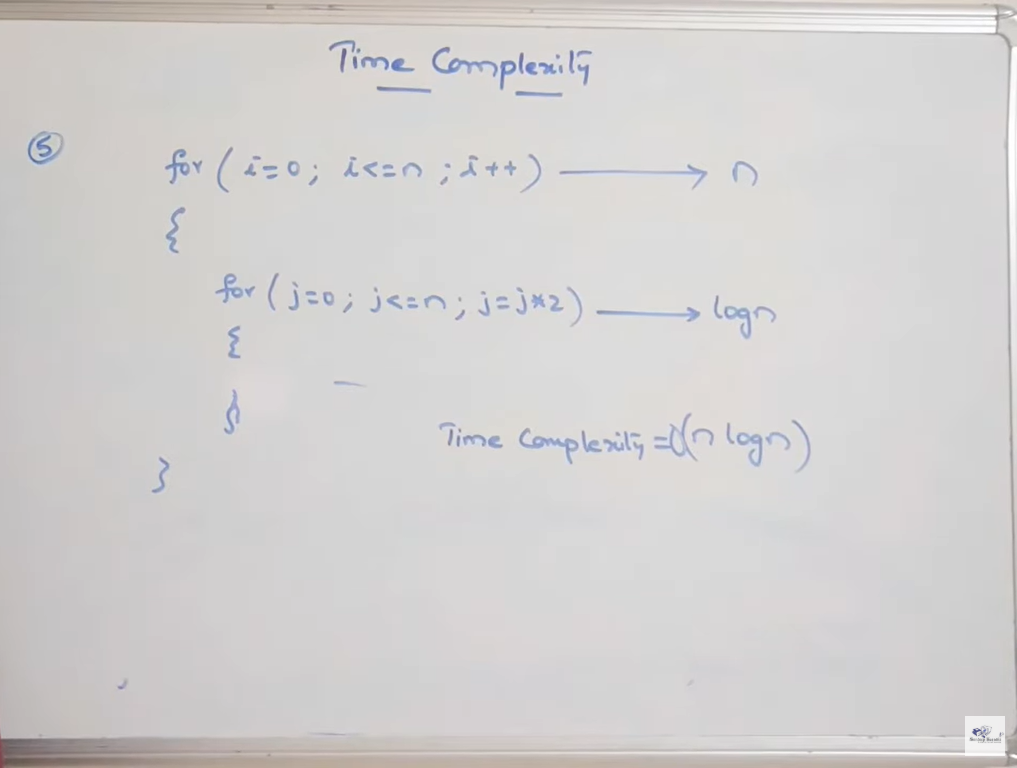 Time Complexity
5
for ( i=0; i<=n ; i++) → n
{
for ( j=0; j<=n; j=j*2) → logn
{
}
Time Complexity = O(n logn)
}